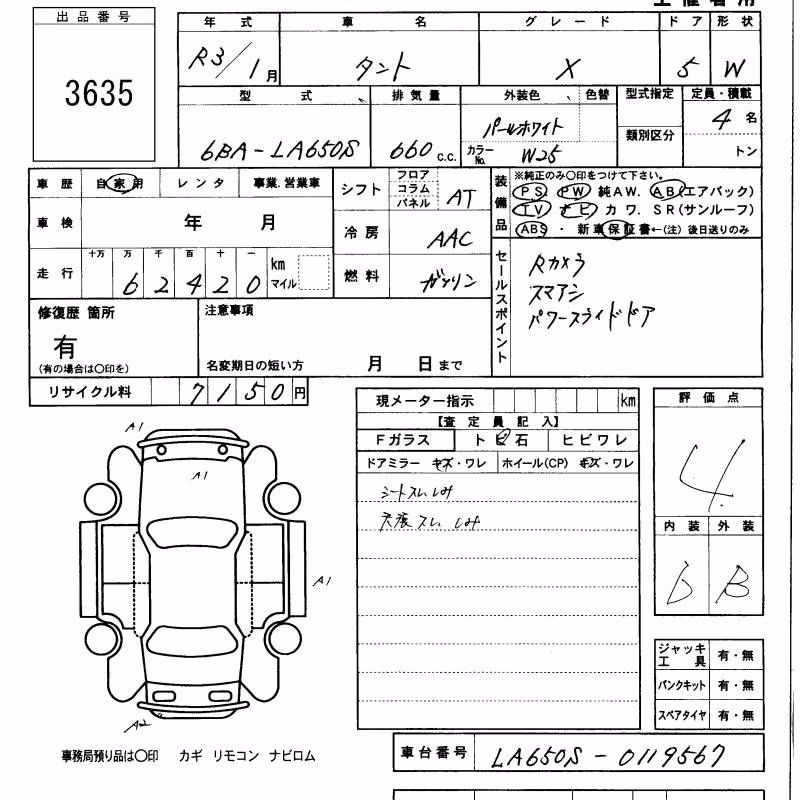 出品番号
3635
年式 車名 グレード ドア 形状
R3/1月 タント X 5 W
型式 排気量 外装色 色替 型式指定 定員・積載
6BA-LA650S 660 c.c. パールホワイト カラーNo. W25 類別区分 4 名
トン
車歴 自家用 レンタ 事業.営業車
車検 年 月
走行 十万 万 千 百 十 一
6 2 4 2 0 km マイル
シフト フロア コラム パネル AT
冷房 AAC
燃料 ガソリン
装備品
※純正のみ〇印をつけて下さい。
PS PW 純AW. AB(エアバック)
TV ナビ カワ. SR(サンルーフ)
ABS ・ 新車保証書←(注) 後日送りのみ
セールスポイント
Rカメラ
スマアシ
パワースライドドア
修復歴 箇所
有
(有の場合は〇印を)
注意事項
名変期日の短い方 月 日まで
リサイクル料 7 1 5 0 円
現メーター指示 km
【査定員記入】
Fガラス トビ石 ヒビワレ
ドアミラー キズ・ワレ ホイール(CP) キズ・ワレ
シートスレ、しみ
天張スレ、しみ
評価点
4.
内装 外装
b B
A1
A1
A1
A2
ジャッキ工具 有・無
パンクキット 有・無
スペアタイヤ 有・無
事務局預り品は〇印 カギ リモコン ナビロム
車台番号 LA650S-0119567